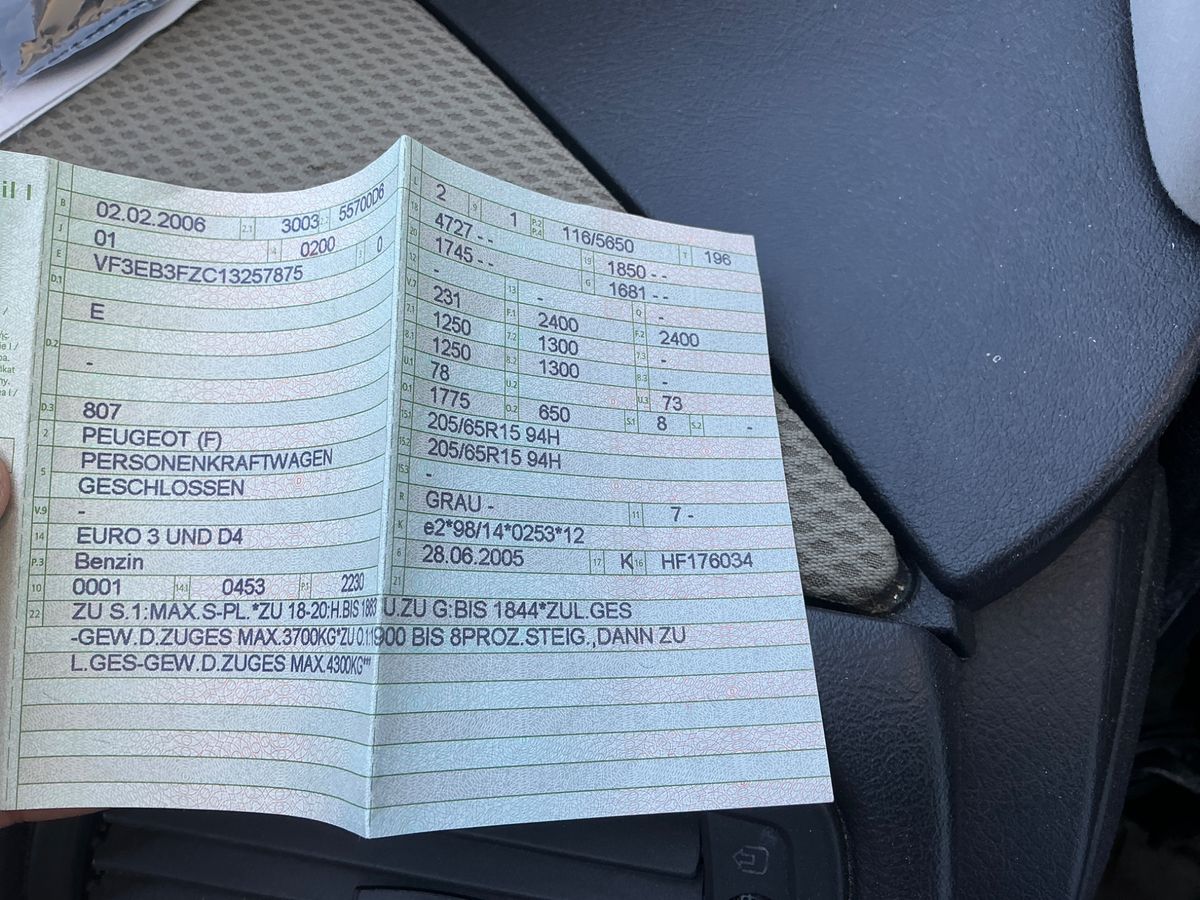 il I
B 02.02.2006 2.1 3003 55700D6
J 01 4 0200 3 0
E VF3EB3FZC13257875
D.1
E
D.2 -
D.3 807
2 PEUGEOT (F)
PERSONENKRAFTWAGEN
5 GESCHLOSSEN
V.9 -
14 EURO 3 UND D4
P.3 Benzin
10 0001 14.1 0453 P.1 2230
L 2 9 1 P.2 P.4 116/5650 T 196
18 4727 - - 19 1850 - -
20 1745 - - G 1681 - -
12 - 13 - Q -
V.7 231 F.1 2400 F.2 2400
7.1 1250 7.2 1300 7.3 -
8.1 1250 8.2 1300 8.3 -
U.1 78 U.2 U.3 73
O.1 1775 O.2 650 S.1 8 S.2 -
15.1 205/65R15 94H
15.2 205/65R15 94H
15.3 -
R GRAU - 11 7 -
K e2*98/14*0253*12
6 28.06.2005 17 K 16 HF176034
21
22 ZU S.1:MAX.S-PL.*ZU 18-20:H.BIS 1863 U.ZU G:BIS 1844*ZUL.GES
-GEW.D.ZUGES MAX.3700KG*ZU O.1:1900 BIS 8PROZ.STEIG.,DANN ZU
L.GES-GEW.D.ZUGES MAX.4300KG***